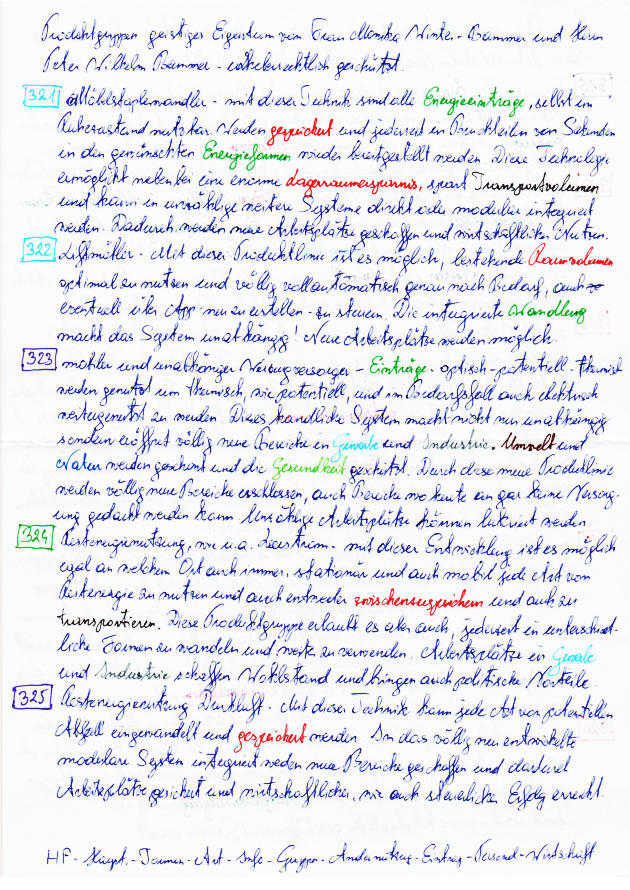 Produktgruppen geistiges Eigentum von Frau Monika Winter-Bammer und Herrn
Peter Wilhelm Bammer - urheberrechtlich geschützt.
321 - mit dieser Technik sind alle Energieeinträge, selbst im
Ruhezustand nutzbar. Werden gespeichert und jederzeit in Bruchteilen von Sekunden
in den gewünschten Energieformen wieder bereitgestellt werden Diese Technologie
ermöglicht nebenbei eine enorme Lagerraumersparnis, spart Transportvolumen
und kann in unzählige weitere Systeme direkt oder modular integriert
werden. Dadurch werden neue Arbeitsplätze geschaffen und wirtschaftlicher Nutzen.
322 - Mit dieser Produktlinie ist es möglich, bestehende Raumvolumen
optimal zu nutzen und völlig vollautomatisch genau nach Bedarf, auch
eventuell über App neu zu erstellen - zu steuern. Die integrierte Wandlung
macht das System unabhängig! Neue Arbeitsplätze werden möglich.
323 mobiler und unabhängiger - Einträge - optisch - potentiell - thermisch
werden genutzt um thermisch, wie potentiell, und im Bedarfsfall auch elektrisch
weitergenutzt zu werden. Dieses handliche System macht nicht nur unabhängig
sondern eröffnet völlig neue Bereiche in Gewerbe und Industrie. Umwelt und
Natur werden geschont und die Gesundheit geschützt. Durch diese neue Produktlinie
werden völlig neue Bereiche erschlossen, auch Bereiche wo heute an gar keine Versorg-
ung gedacht werden kann Unzählige Arbeitsplätze können lukriert werden
324 Restenergienutzung, wie u.a. Leerstrom - mit dieser Entwicklung ist es möglich
egal an welchem Ort auch immer, stationär und auch mobil jede Art von
Restenergie zu nutzen und auch entweder zwischenzuspeichern und auch zu
transportieren. Diese Produktgruppe erlaubt es aber auch, jederzeit in unterschied-
liche Formen zu wandeln und weiter zu verwenden. Arbeitsplätze in Gewerbe
und Industrie schaffen Wohlstand und bringen auch politische Vorteile.
325 Restenergienutzung Druckluft - Mit dieser Technik kann jede Art von potentiellen
Abfall eingewandelt und gespeichert werden In das völlig neu entwickelte
modulare System integriert werden neue Bereiche geschaffen und dadurch
Arbeitsplätze gesichert und wirtschaftlicher, wie auch steuerlicher Erfolg erreicht.
HF - Haupt. - Formen - Art - Info - Gruppe - - Eintrag - Personal - Wirtschaft